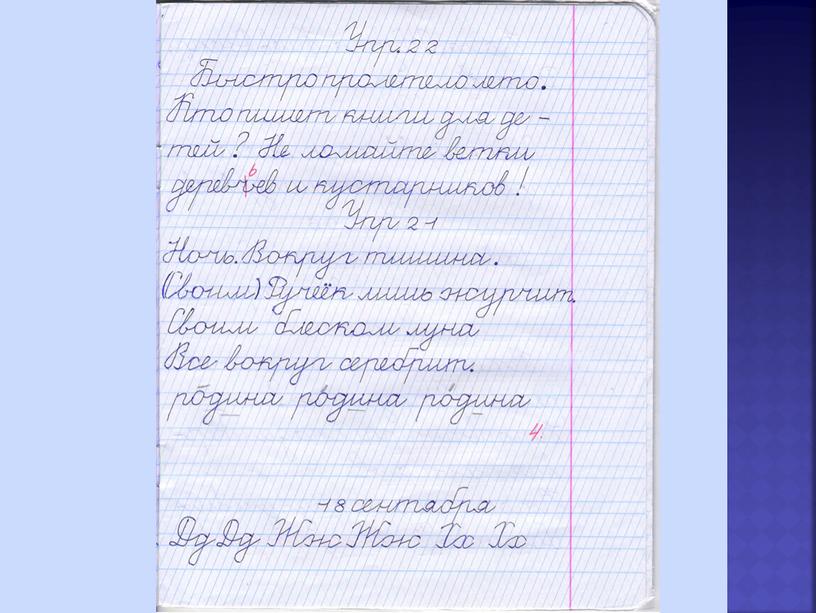 Упр. 22
Быстро пролетело лето.
Кто пишет книги для де -
тей? Не ломайте ветки
деревьев и кустарников!
Упр 21
Ночь. Вокруг тишина.
(Своим) Ручеёк лишь журчит.
Своим блеском луна
Все вокруг серебрит.
ро́дина ро́дина ро́дина
4.
18 сентября
Дд Дд Жж Жж Хх Хх